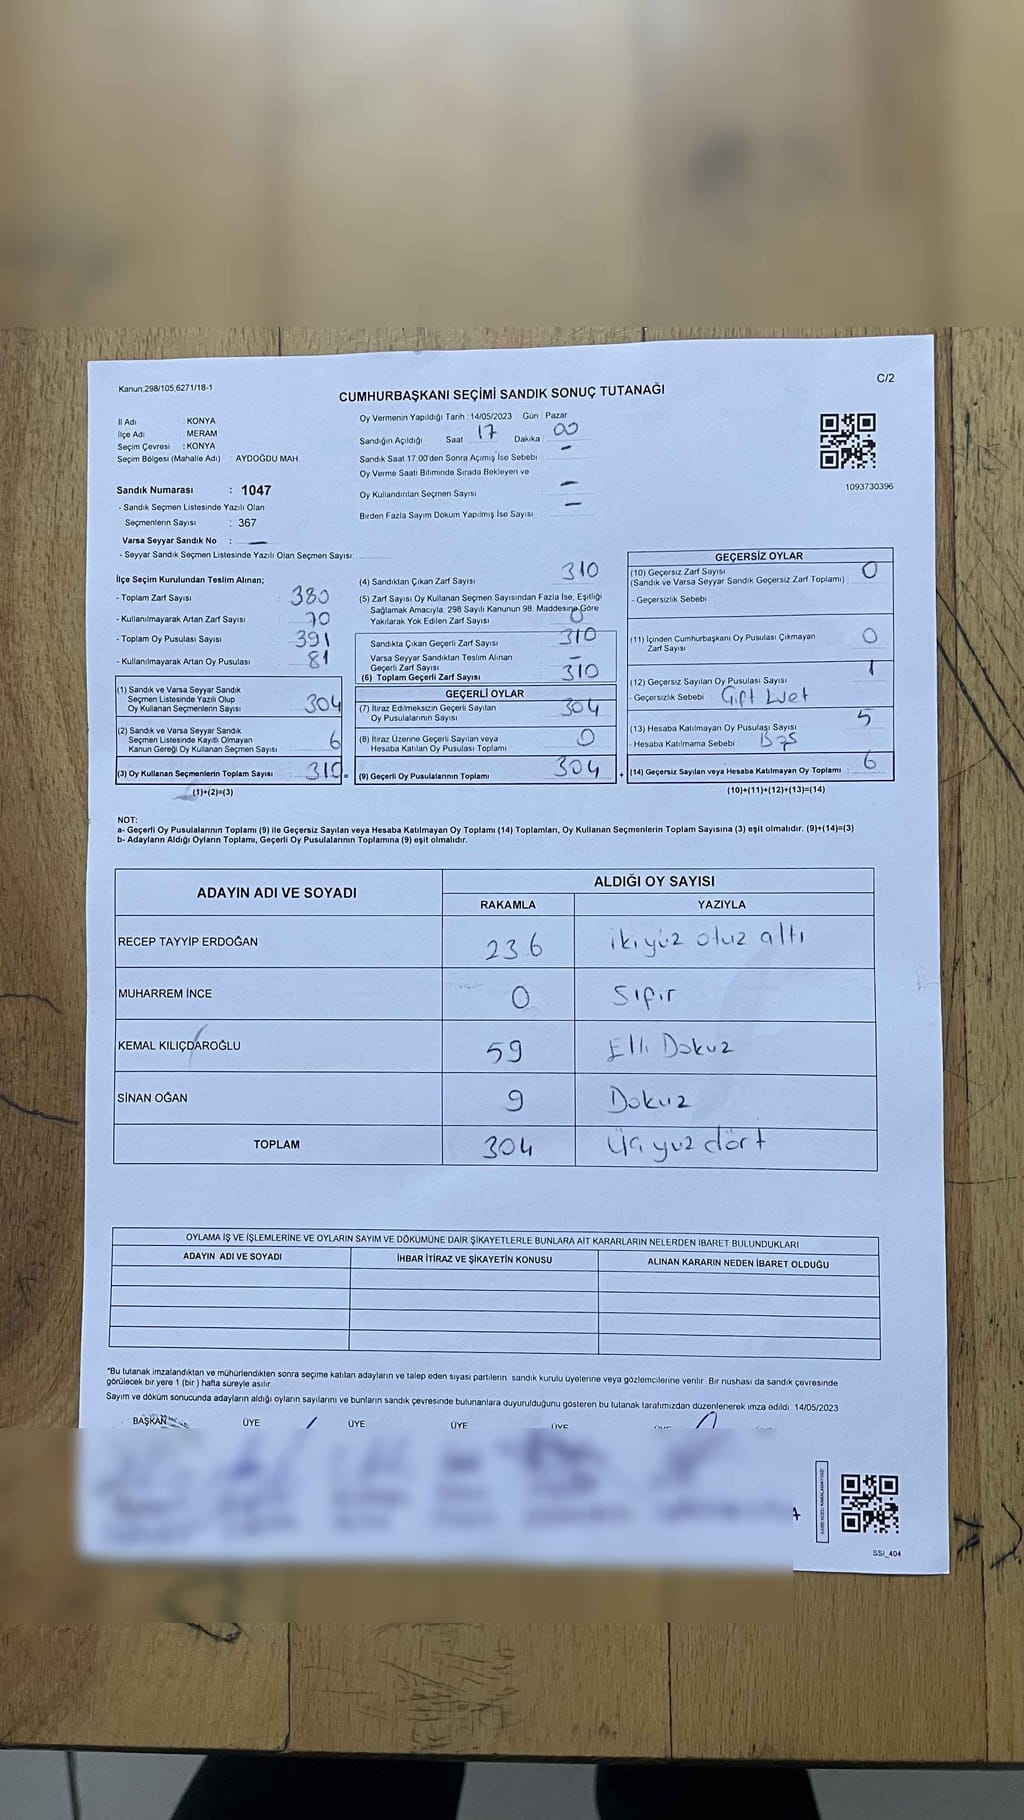 Kanun:298/105,6271/18-1
C/2
CUMHURBAŞKANI SEÇİMİ SANDIK SONUÇ TUTANAĞI
İl Adı : KONYA
İlçe Adı : MERAM
Seçim Çevresi : KONYA
Seçim Bölgesi (Mahalle Adı) : AYDOĞDU MAH.
Sandık Numarası : 1047
- Sandık Seçmen Listesinde Yazılı Olan
Seçmenlerin Sayısı : 367
Varsa Seyyar Sandık No : —
- Seyyar Sandık Seçmen Listesinde Yazılı Olan Seçmen Sayısı:
Oy Vermenin Yapıldığı Tarih : 14/05/2023 Gün : Pazar
Sandığın Açıldığı Saat 17 Dakika 00
Sandık Saat 17.00'den Sonra Açımış İse Sebebi –
Oy Verme Saati Bitiminde Sırada Bekleyen ve
Oy Kullandırılan Seçmen Sayısı –
Birden Fazla Sayım Döküm Yapılmış İse Sayısı : –
1093730396
İlçe Seçim Kurulundan Teslim Alınan;
- Toplam Zarf Sayısı : 380
- Kullanılmayarak Artan Zarf Sayısı : 70
- Toplam Oy Pusulası Sayısı : 391
- Kullanılmayarak Artan Oy Pusulası : 81
(1) Sandık ve Varsa Seyyar Sandık
Seçmen Listesinde Yazılı Olup
Oy Kullanan Seçmenlerin Sayısı : 304
(2) Sandık ve Varsa Seyyar Sandık
Seçmen Listesinde Kayıtlı Olmayan
Kanun Gereği Oy Kullanan Seçmen Sayısı : 6
(3) Oy Kullanan Seçmenlerin Toplam Sayısı : 310 =
(1)+(2)=(3)
(4) Sandıktan Çıkan Zarf Sayısı 310
(5) Zarf Sayısı Oy Kullanan Seçmen Sayısından Fazla İse, Eşitliği
Sağlamak Amacıyla, 298 Sayılı Kanunun 98. Maddesine Göre
Yakılarak Yok Edilen Zarf Sayısı : 0
Sandıkta Çıkan Geçerli Zarf Sayısı 310
Varsa Seyyar Sandıktan Teslim Alınan
Geçerli Zarf Sayısı –
(6) Toplam Geçerli Zarf Sayısı 310
GEÇERLİ OYLAR
(7) İtiraz Edilmeksizin Geçerli Sayılan
Oy Pusulalarının Sayısı : 304
(8) İtiraz Üzerine Geçerli Sayılan veya
Hesaba Katılan Oy Pusulası Toplamı : 0
(9) Geçerli Oy Pusulalarının Toplamı : 304 +
GEÇERSİZ OYLAR
(10) Geçersiz Zarf Sayısı
(Sandık ve Varsa Seyyar Sandık Geçersiz Zarf Toplamı) : 0
- Geçersizlik Sebebi :
(11) İçinden Cumhurbaşkanı Oy Pusulası Çıkmayan
Zarf Sayısı : 0
(12) Geçersiz Sayılan Oy Pusulası Sayısı : 1
- Geçersizlik Sebebi : Çift Evet
(13) Hesaba Katılmayan Oy Pusulası Sayısı : 5
- Hesaba Katılmama Sebebi :
(14) Geçersiz Sayılan veya Hesaba Katılmayan Oy Toplamı : 6
(10)+(11)+(12)+(13)=(14)
NOT:
a- Geçerli Oy Pusulalarının Toplamı (9) ile Geçersiz Sayılan veya Hesaba Katılmayan Oy Toplamı (14) Toplamları, Oy Kullanan Seçmenlerin Toplam Sayısına (3) eşit olmalıdır. (9)+(14)=(3)
b- Adayların Aldığı Oyların Toplamı, Geçerli Oy Pusulalarının Toplamına (9) eşit olmalıdır.
ADAYIN ADI VE SOYADI ALDIĞI OY SAYISI
RAKAMLA YAZIYLA
RECEP TAYYİP ERDOĞAN 236 ikiyüz otuz altı
MUHARREM İNCE 0 Sıfır
KEMAL KILIÇDAROĞLU 59 Elli Dokuz
SİNAN OĞAN 9 Dokuz
TOPLAM 304 Üç yuz dört
OYLAMA İŞ VE İŞLEMLERİNE VE OYLARIN SAYIM VE DÖKÜMÜNE DAİR ŞİKAYETLERLE BUNLARA AİT KARARLARIN NELERDEN İBARET BULUNDUKLARI
ADAYIN ADI VE SOYADI İHBAR İTİRAZ VE ŞİKAYETİN KONUSU ALINAN KARARIN NEDEN İBARET OLDUĞU
*Bu tutanak imzalandıktan ve mühürlendikten sonra seçime katılan adayların ve talep eden siyasi partilerin sandık kurulu üyelerine veya gözlemcilerine verilir. Bir nüshası da sandık çevresinde
görülecek bir yere 1 (bir) hafta süreyle asılır.
Sayım ve döküm sonucunda adayların aldığı oyların sayılarını ve bunların sandık çevresinde bulunanlara duyurulduğunu gösteren bu tutanak tarafımızdan düzenlenerek imza edildi. 14/05/2023
BAŞKAN ÜYE ÜYE ÜYE ÜYE
SSI_404